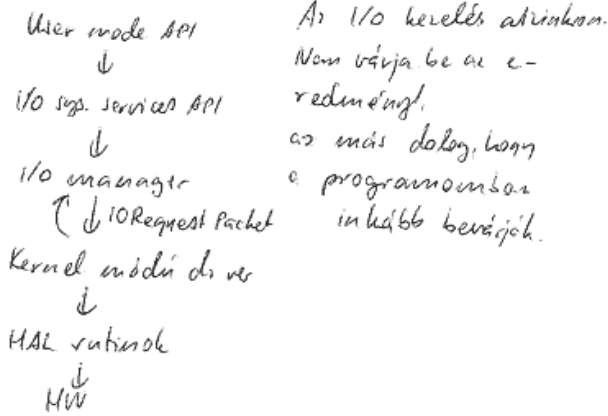 User mode API
↓
i/o sys. services API
↓
i/o manager
↓ IORequest Packet
Kernel módú driver
↓
HAL rutinok
↓
HW
Az I/O kezelés aszinkron.
Nem várja be az e-
redményt,
az más dolog, hogy
a programomban
inkább bevárják.